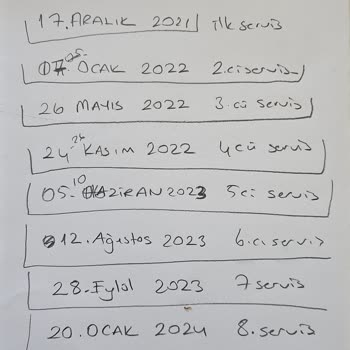 17. ARALIK 2021 ilk servis
05. OCAK 2022 2.ci servis
26 MAYIS 2022 3.cü servis
24 KASIM 2022 4cü servis
05. HAZİRAN 2023 5ci servis
12. Ağustos 2023 6.cı servis
28. Eylül 2023 7 servis
20. OCAK 2024 8. servis